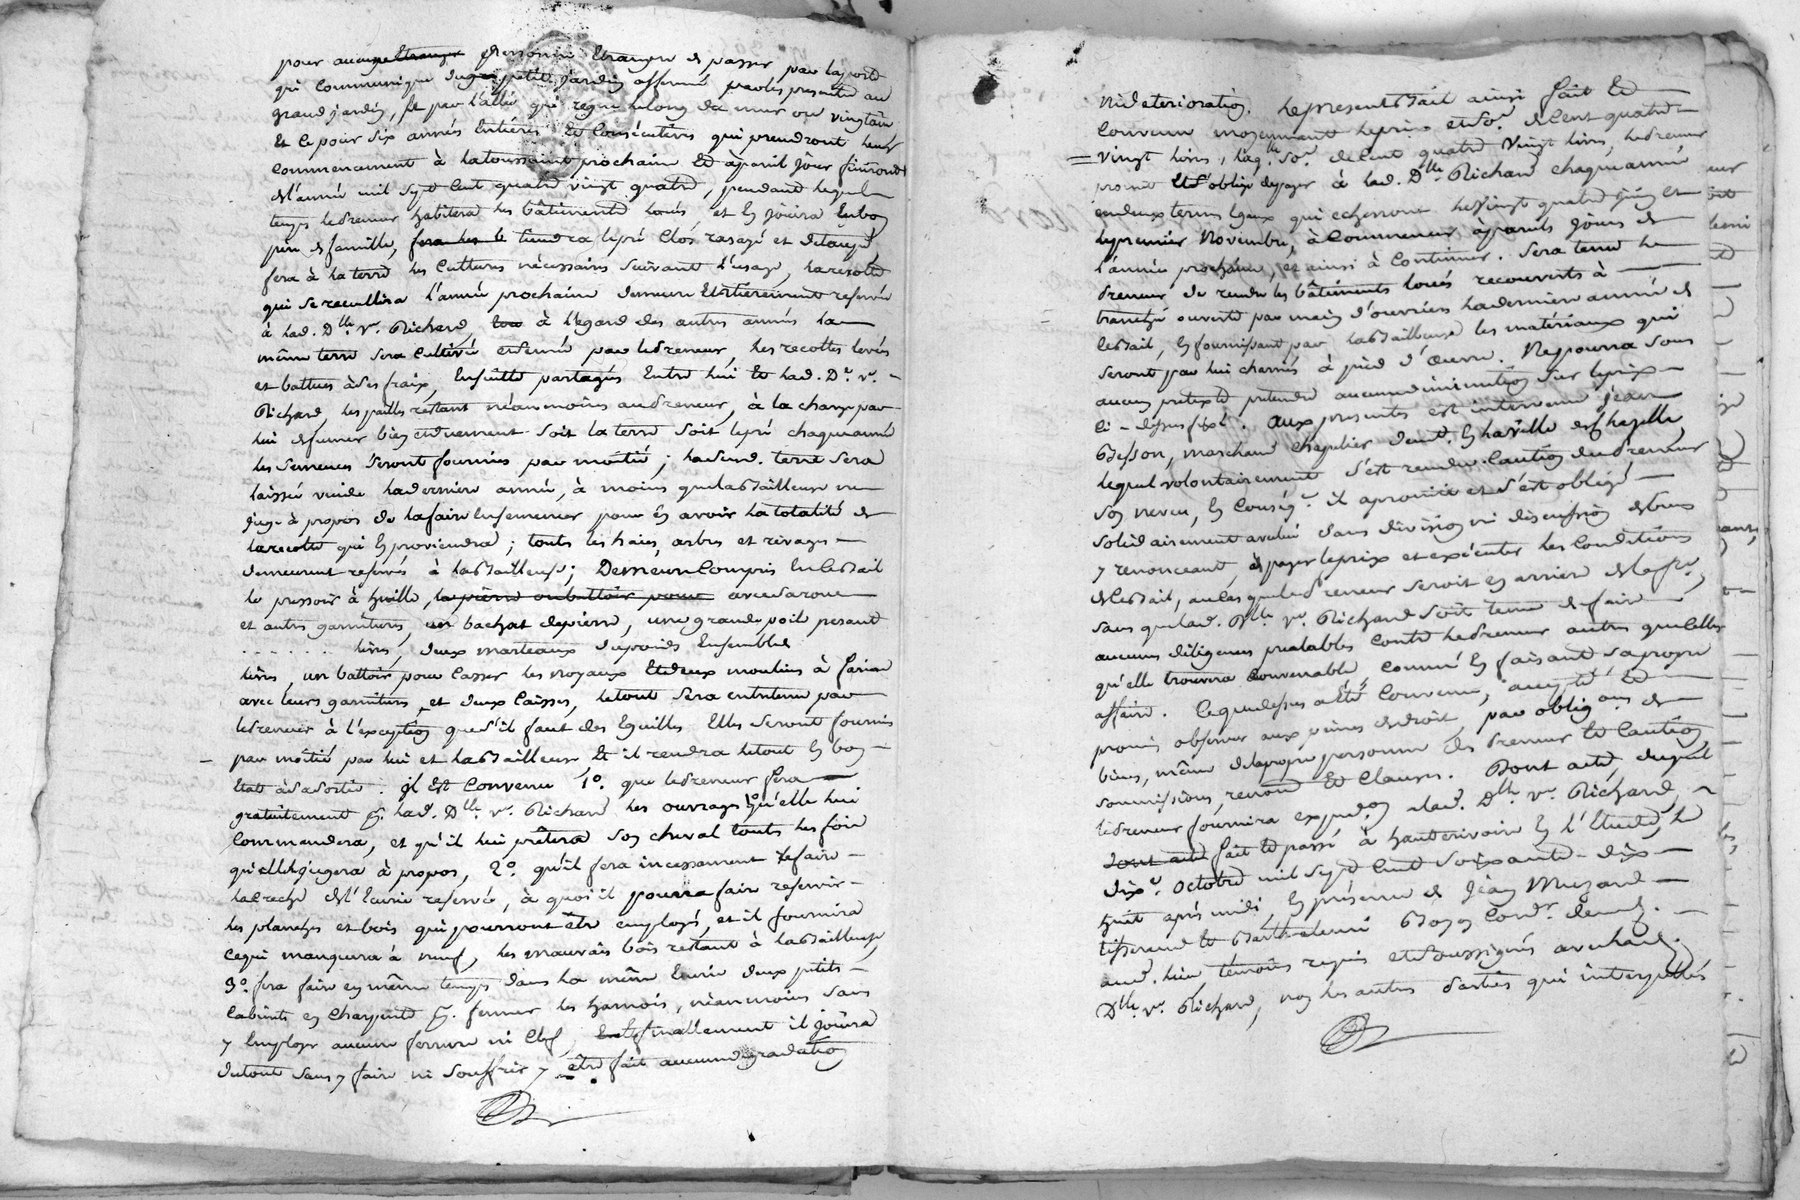 pour aucune Etranger personne Etrangere de passer par la porte
qui communique du petit jardin affermé par les presentes au
grand jardin, et par l'allée qui regne le long du mur ou vingtain
Et ce pour six années Entieres Et Consécutives qui prendront leur
commencement à la toussaint prochaine Et à pareil jour finiront
de l'année mil sept cent quatre vingt quatre, pendant lequel
temps le preneur habitera les bâtiments loués, et En jouira En bon
pere de famille, fera les le tiendra le pré clos rasazé et
fera à la terre les cultures nécessaires suivant l'usage, la récolte
qui se recuillira l'année prochaine demeure Entièrement reservée
à lad. Dlle. ve. Richard, à l'égard des autres années la
même terre sera cultivée et semée par le preneur, les recoltes levées
et battues à ses fraix, Ensuitte partagés Entre lui Et lad. De. ve.
Richard, les pailles restant néanmoins au preneur, à la charge par
lui de fumer bien et duement soit la terre soit le pré chaque année
les semences seront fournies par moitié ; la susd. terre sera
laissée vuide la derniere année, à moins que la Bailleuse ne
juge à propos de la faire Ensemencer pour En avoir la totalité de
la recolte qui En proviendra ; touts les haies, arbres et rivages
demeurent reservés à la Bailleuse ; Demeure Compris En le Bail
le pressoir à huille, la pierre ou battoir pour avec sa roue
et autres garnitures, un bachat de pierre, une grande poile pesant
. . . . . . livres, deux marteaux du poids Ensemble
livres, un battoir pour casser les noyaux Et deux moulins à farine
avec leurs garnitures, et deux caisses, le tout sera entretenu par
le preneur à l'exception que s'il faut des Eguilles Elles seront fournies
par moitié par lui et la Bailleuse Et il rendra le tout En bon
Etat à sa sortie. Il Est convenu 1o. que le preneur fera
gratuitement p. lad. Dlle. ve. Richard les ouvrages qu'elle lui
commandera, et qu'il lui prêtera son cheval touts les fois
qu'elle jugera à propos, 2o. qu'il fera incessament refaire
la creche de l'Ecurie reservée, à quoi il pourra faire reservir
les planches et bois qui pourront être employés, et il fournira
ce qui manquera à neuf, les mauvais bois restant à la Bailleuse,
3o. fera faire en même temps dans la même Ecurie deux petits
cabinets en charpente p. fermer les harnois, néanmoins sans
y Employer aucune ferrure ni clef, Enfin finallement il jouira
du tout sans y faire ni souffrir y être fait aucune degradation
ni deterioration. Le present Bail ainsi fait Et
Convenu moyennant le prix et so.e de Cent quatre
vingt livres, laq.lle so.e de Cent quatre vingt livres, le preneur
promet Et s'oblige de payer à lad. Dlle. Richard chaque année
en deux termes Egaux qui echerront les vingt quatre juin et
le premier Novembre, à commencer à pareils jours de
l'année prochaine, et ainsi à continuer. Sera tenu le
preneur de rendre les bâtiments loués recouverts à
tranché ouverte par main d'ouvriers la derniere année de
le Bail, En fournissant par la Bailleuse les matériaux qui
seront par lui charriés à pied d'œuvre. Ne pourra sous
aucun pretexte pretendre aucune diminution sur le prix
ci-dessus fixé. aux presentes est intervenu jean
Besson, marchand chapelier demt. En la ville de chazelle
lequel volontairement s'est rendu caution du preneur
son neveu, En conséq.ce il a promis et s'est obligé
solidairement avec lui sans division ni discussion de biens
y renonceant, de payer le prix et exécuter les conditions
de le Bail, au cas que le Preneur seroit En arriere de le faire,
sans que lad. Dlle. ve. Richard soit tenue de faire
aucunes diligences prealables contre le preneur autres que celles
qu'elle trouvera convenable comme En faisant sa propre
affaire. Ce que dessus a Eté convenu, accepté Et
promis observer aux peines de droit, par oblig.ons de
biens, même de la propre personne des Preneur Et Caution
soumissions, renon.ons Et Clauses. Dont acte, duquel
le preneur fournira exped.on à lad. Dlle. ve. Richard,
dont acte fait Et passé à hauterivoire En l'Etude, le
dix.e octobre mil sept cent soixante-dix
huit après midi, En présence de jean Muzard
tisserand Et Barthelemi Bazin cord.r demt.
aud. lieu, témoins requis et soussignés avec lad.
Dlle. ve. Richard, non les autres Parties qui interpellés